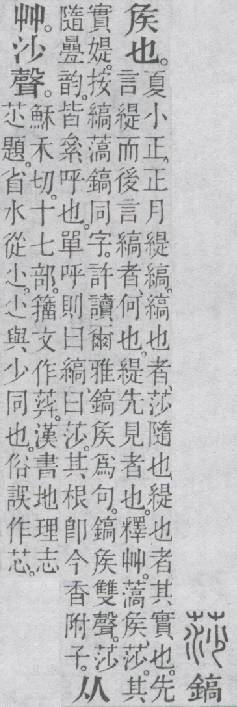 莎 鎬
矦也。
夏小正。正月緹縞。縞也者、莎隨也。緹也者、其實也。先
言緹而後言縞者何也。緹先見者也。釋艸。薃矦、莎。其
實媞。按縞薃鎬同字。許讀爾雅鎬矦爲句。鎬矦雙聲。莎
隨曡韵。皆絫呼也。單呼則曰縞曰莎。其根卽今香附子。
从
艸。沙聲。
穌禾切。十七部。籒文作。漢書地理志
題。省水從尐。尐與少同也。俗誤作芯。